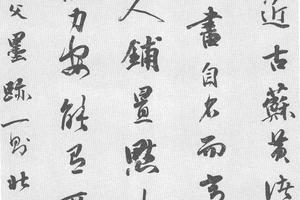 近古蘇黃
書自名而
人鋪置點
力安能
父墨跡一則